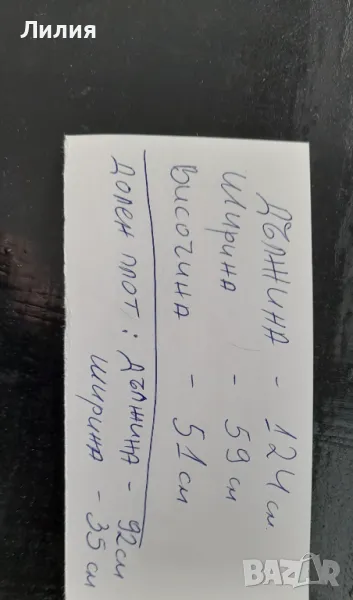 Лилия
Дължина - 124 см.
Ширина - 59 см
Височина - 51 см
Долен плот: Дължина - 92 см
Ширина - 35 см
BAZAR